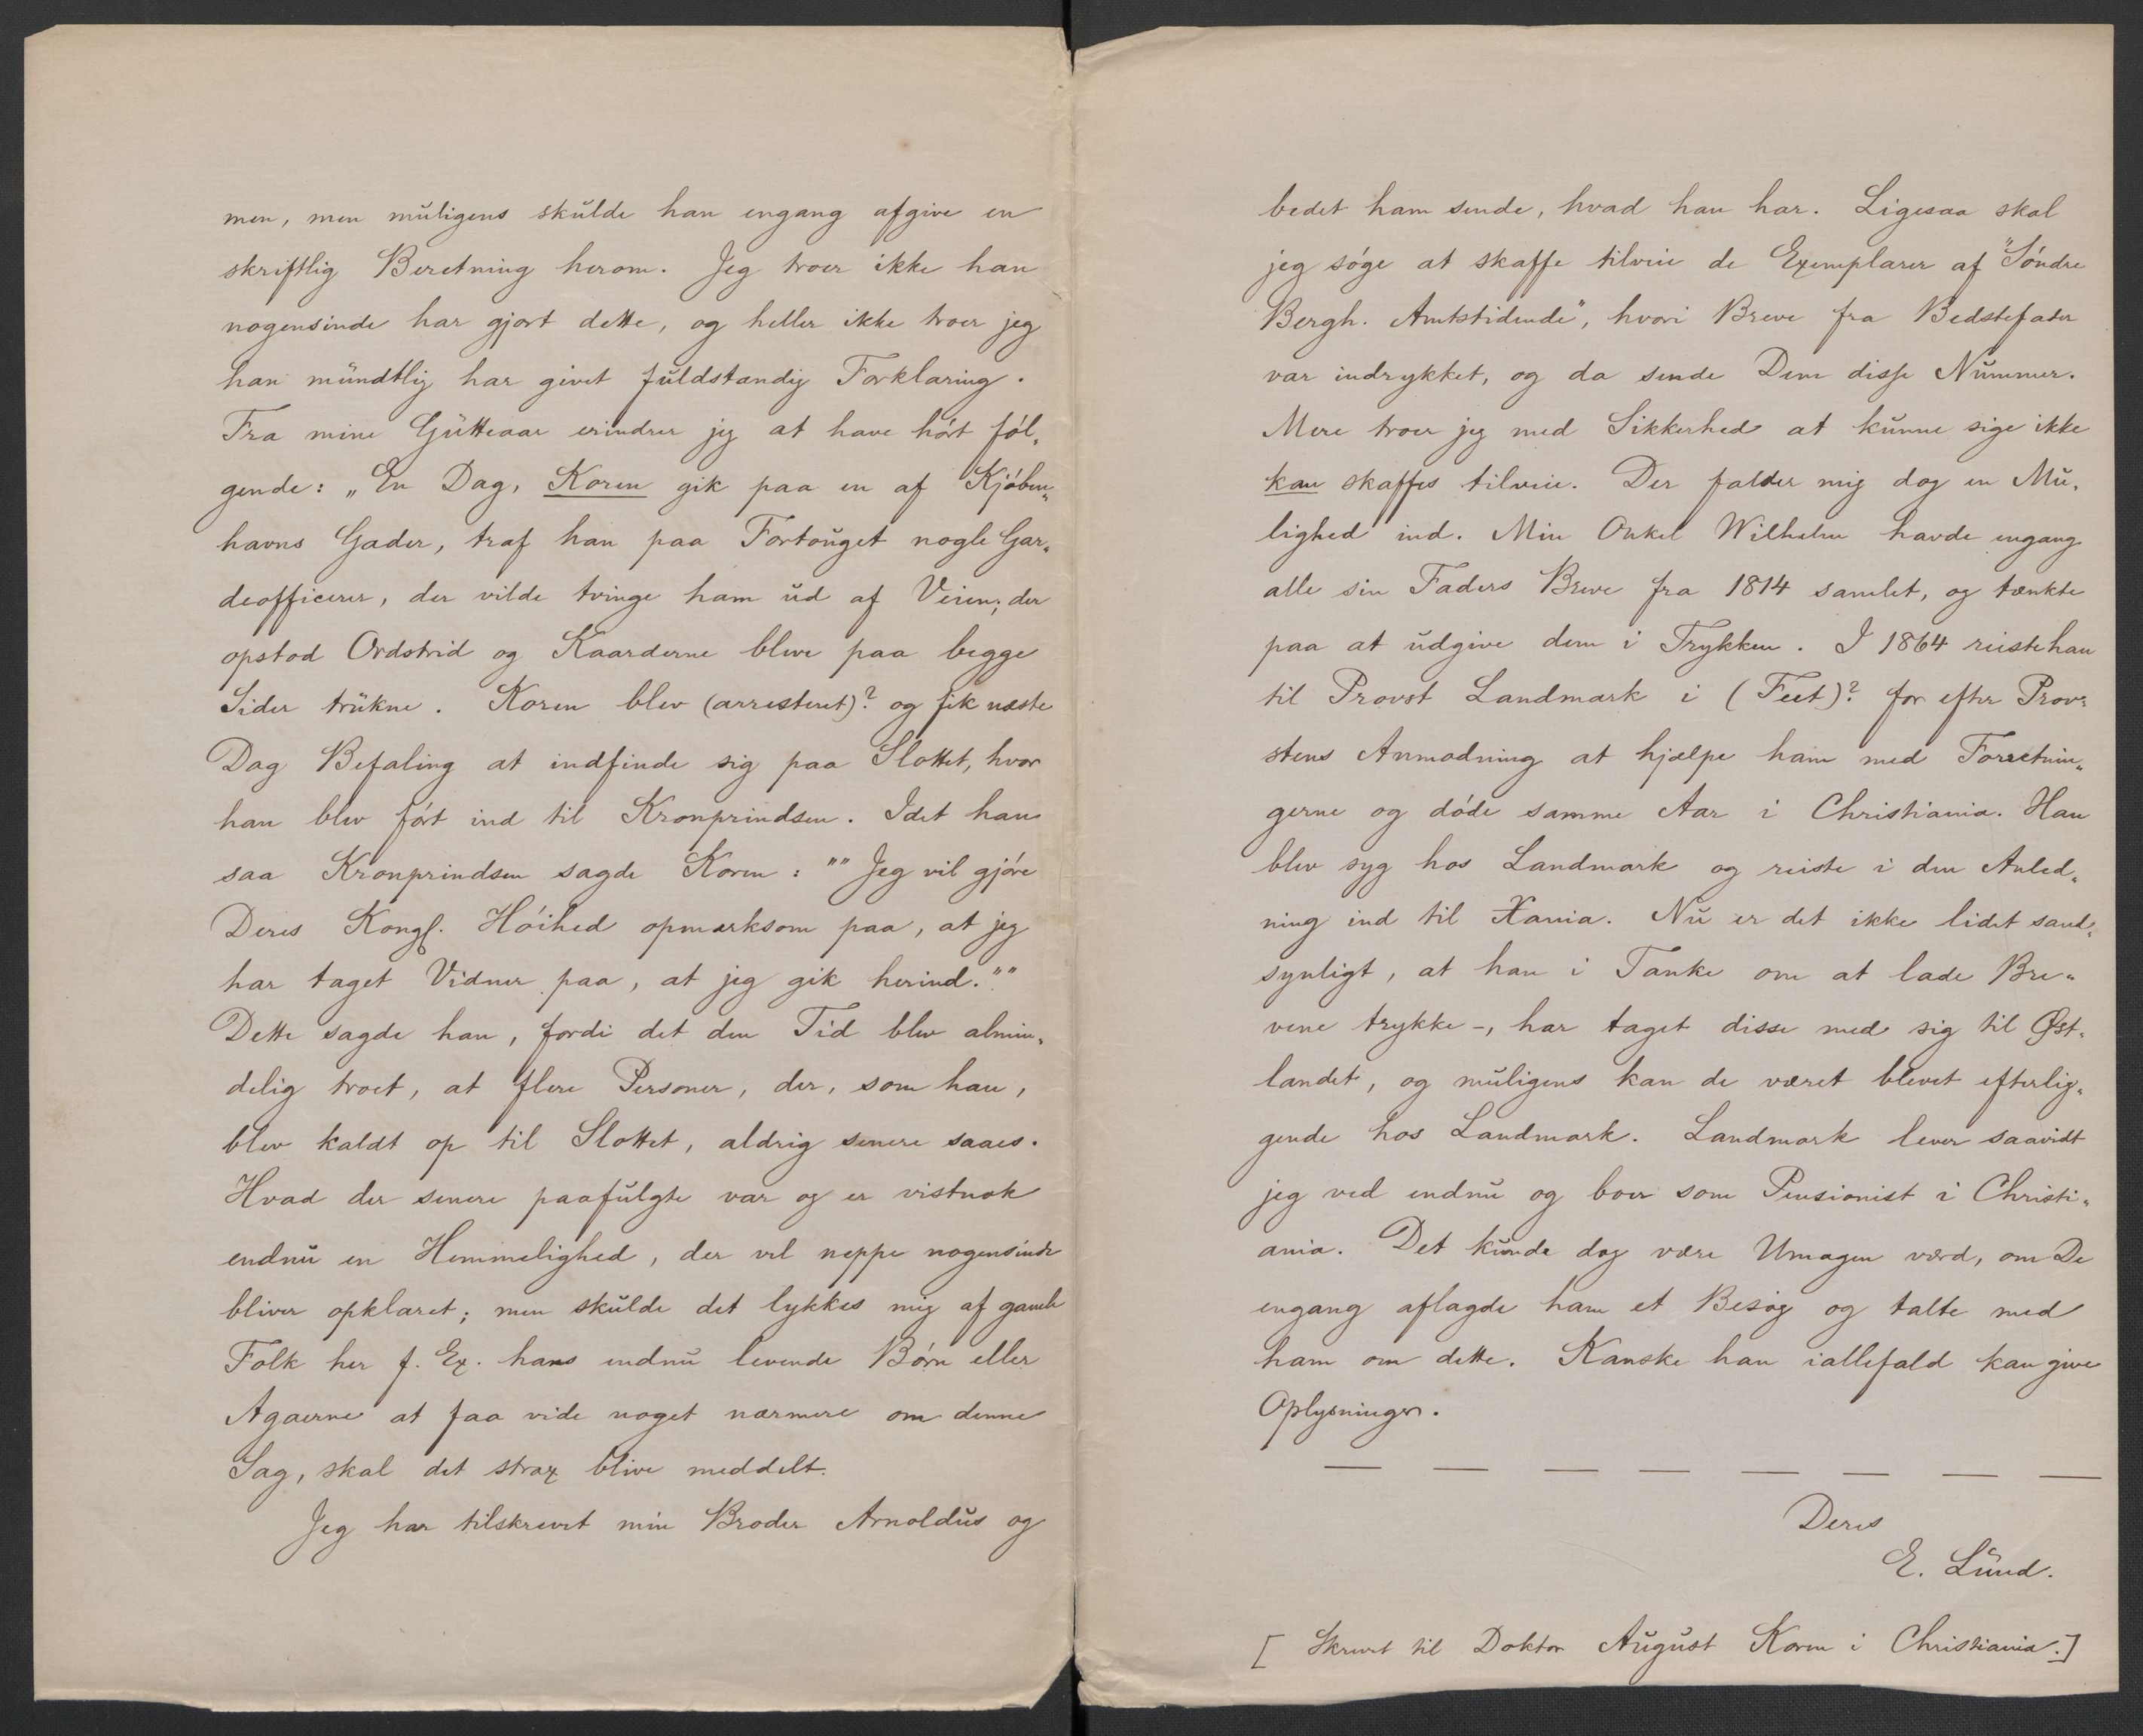 men, men muligens skulde han engang afgive en
skriftlig Beretning herom. Jeg troer ikke han
nogensinde har gjort dette, og heller ikke troer jeg
han mundtlig har givet fuldstændig Forklaring.
Fra mine Gutteaar erindrer jeg at have hört föl„
gende: „En Dag, Koren gik paa en af Kjöben„
havns Gader, traf han paa Fortouget nogle Gar„
deofficerer, der vilde tvinge ham ud af Veien; der
opstod Ordstrid og Kaarderne bleve paa begge
Sider trukne. Koren blev (arresteret)? og fik næste
Dag Befaling at indfinde sig paa Slottet, hvor
han blev fört ind til Kronprindsen. Idet han
saa Kronprindsen sagde Koren: "" Jeg vil gjöre
Deres Kongl. Höihed opmærksom paa, at jeg
har taget Vidner paa, at jeg gik herind.""
Dette sagde han, fordi det den Tid blev almin„
delig troet, at flere Personer, der, som han,
blev kaldt op til Slottet, aldrig senere saaes.
Hvad der senere paafulgte var og er vistnok
endnu en Hemmelighed, der vel neppe nogensinde
bliver opklaret; men skulde det lykkes mig af gamle
Folk her f. Ex. hans endnu levende Börn eller
Agaerne at faa vide noget nærmere om denne
Sag, skal det strax blive meddelt.
Jeg har tilskrevet min Broder Arnoldus og
bedet ham sende, hvad han har. Ligesaa skal
jeg söge at skaffe tilveie de Exemplarer af "Söndre
Bergh. Amtstidende", hvori Breve fra Bedstefader
var indrykket, og da sende Dem disse Nummer.
Mere troer jeg med Sikkerhed at kunne sige ikke
kan skaffes tilveie. Der falder mig dog en Mu„
lighed ind. Min Onkel Wilhelm havde engang
alle sin Faders Breve fra 1814 samlet, og tænkte
paa at udgive dem i Trykken. I 1864 reiste han
til Provst Landmark i (Feet)? for efter Prov„
stens Anmodning at hjælpe ham med Forretnin„
gerne og döde samme Aar i Christiania. Han
blev syg hos Landmark og reiste i den Anled„
ning ind til Xania. Nu er det ikke lidet sand„
synligt, at han i Tanke om at lade Bre„
vene trykke -, har taget disse med sig til Øst„
landet, og muligens kan de været blevet efterlig„
gende hos Landmark. Landmark lever saavidt
jeg ved endnu og boer som Pensionist i Christi„
ania. Det kunde dog være Umagen værd, om De
engang aflagde ham et Besög og talte med
ham om dette. Kanske han iallefald kan give
Oplysninger.
— — — — — — — —
Deres
E. Lund.
[ Skrevet til Doktor August Koren i Christiania.]